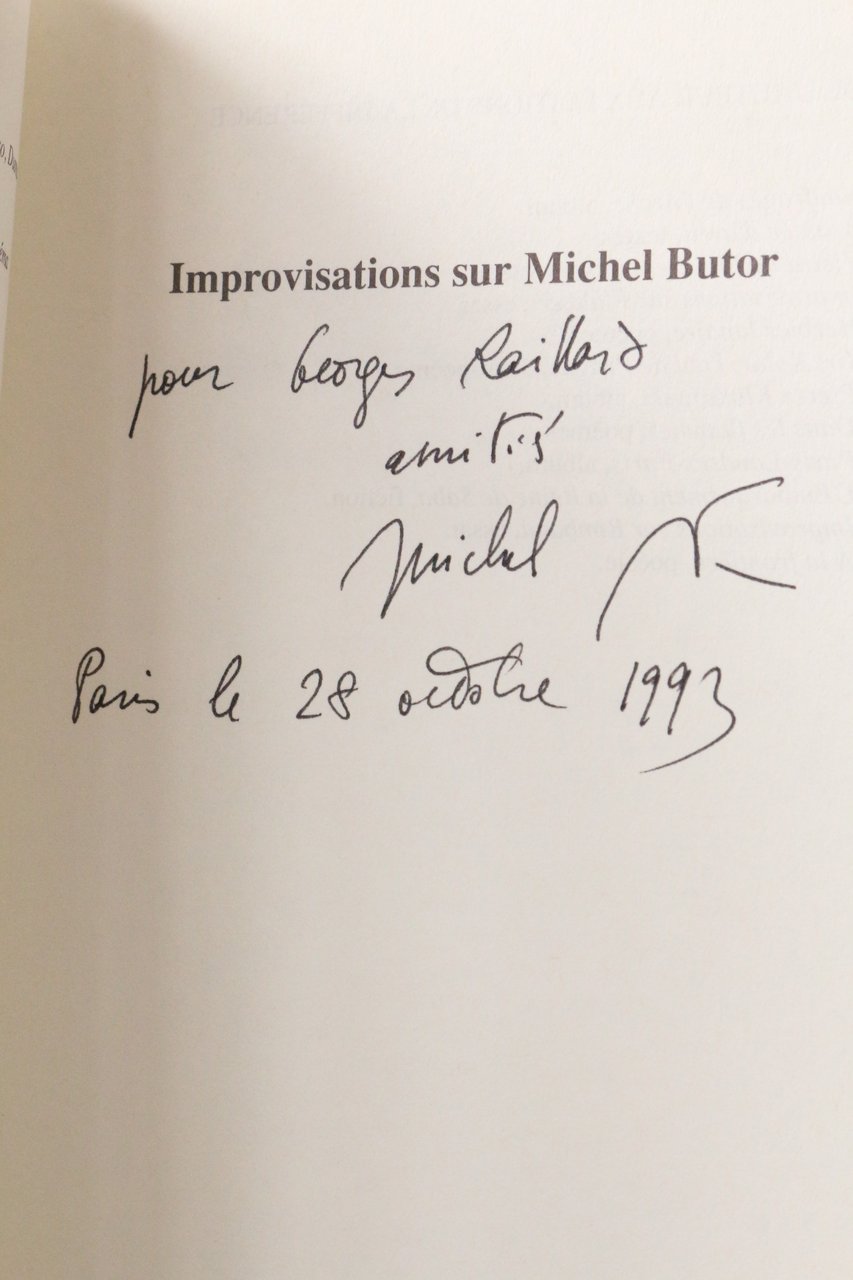 Improvisations sur Michel Butor
pour Georges Raillard
amitiés
Michel
Paris le 28 octobre 1993